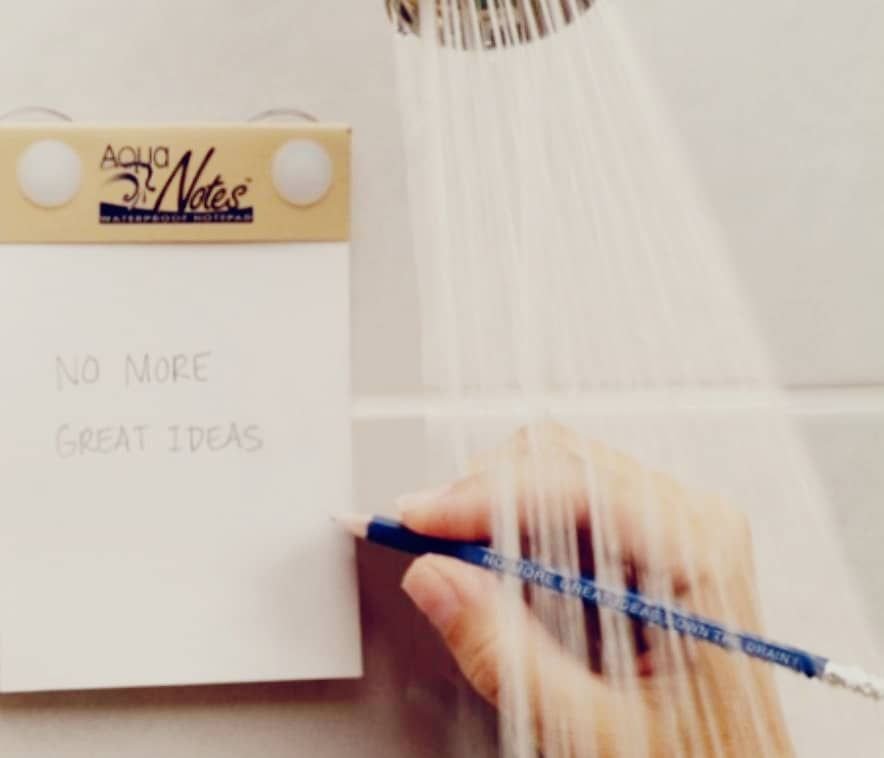 Aqua
Notes™
WATERPROOF NOTEPAD
NO MORE
GREAT IDEAS
NO MORE GREAT IDEAS DOWN THE DRAIN!